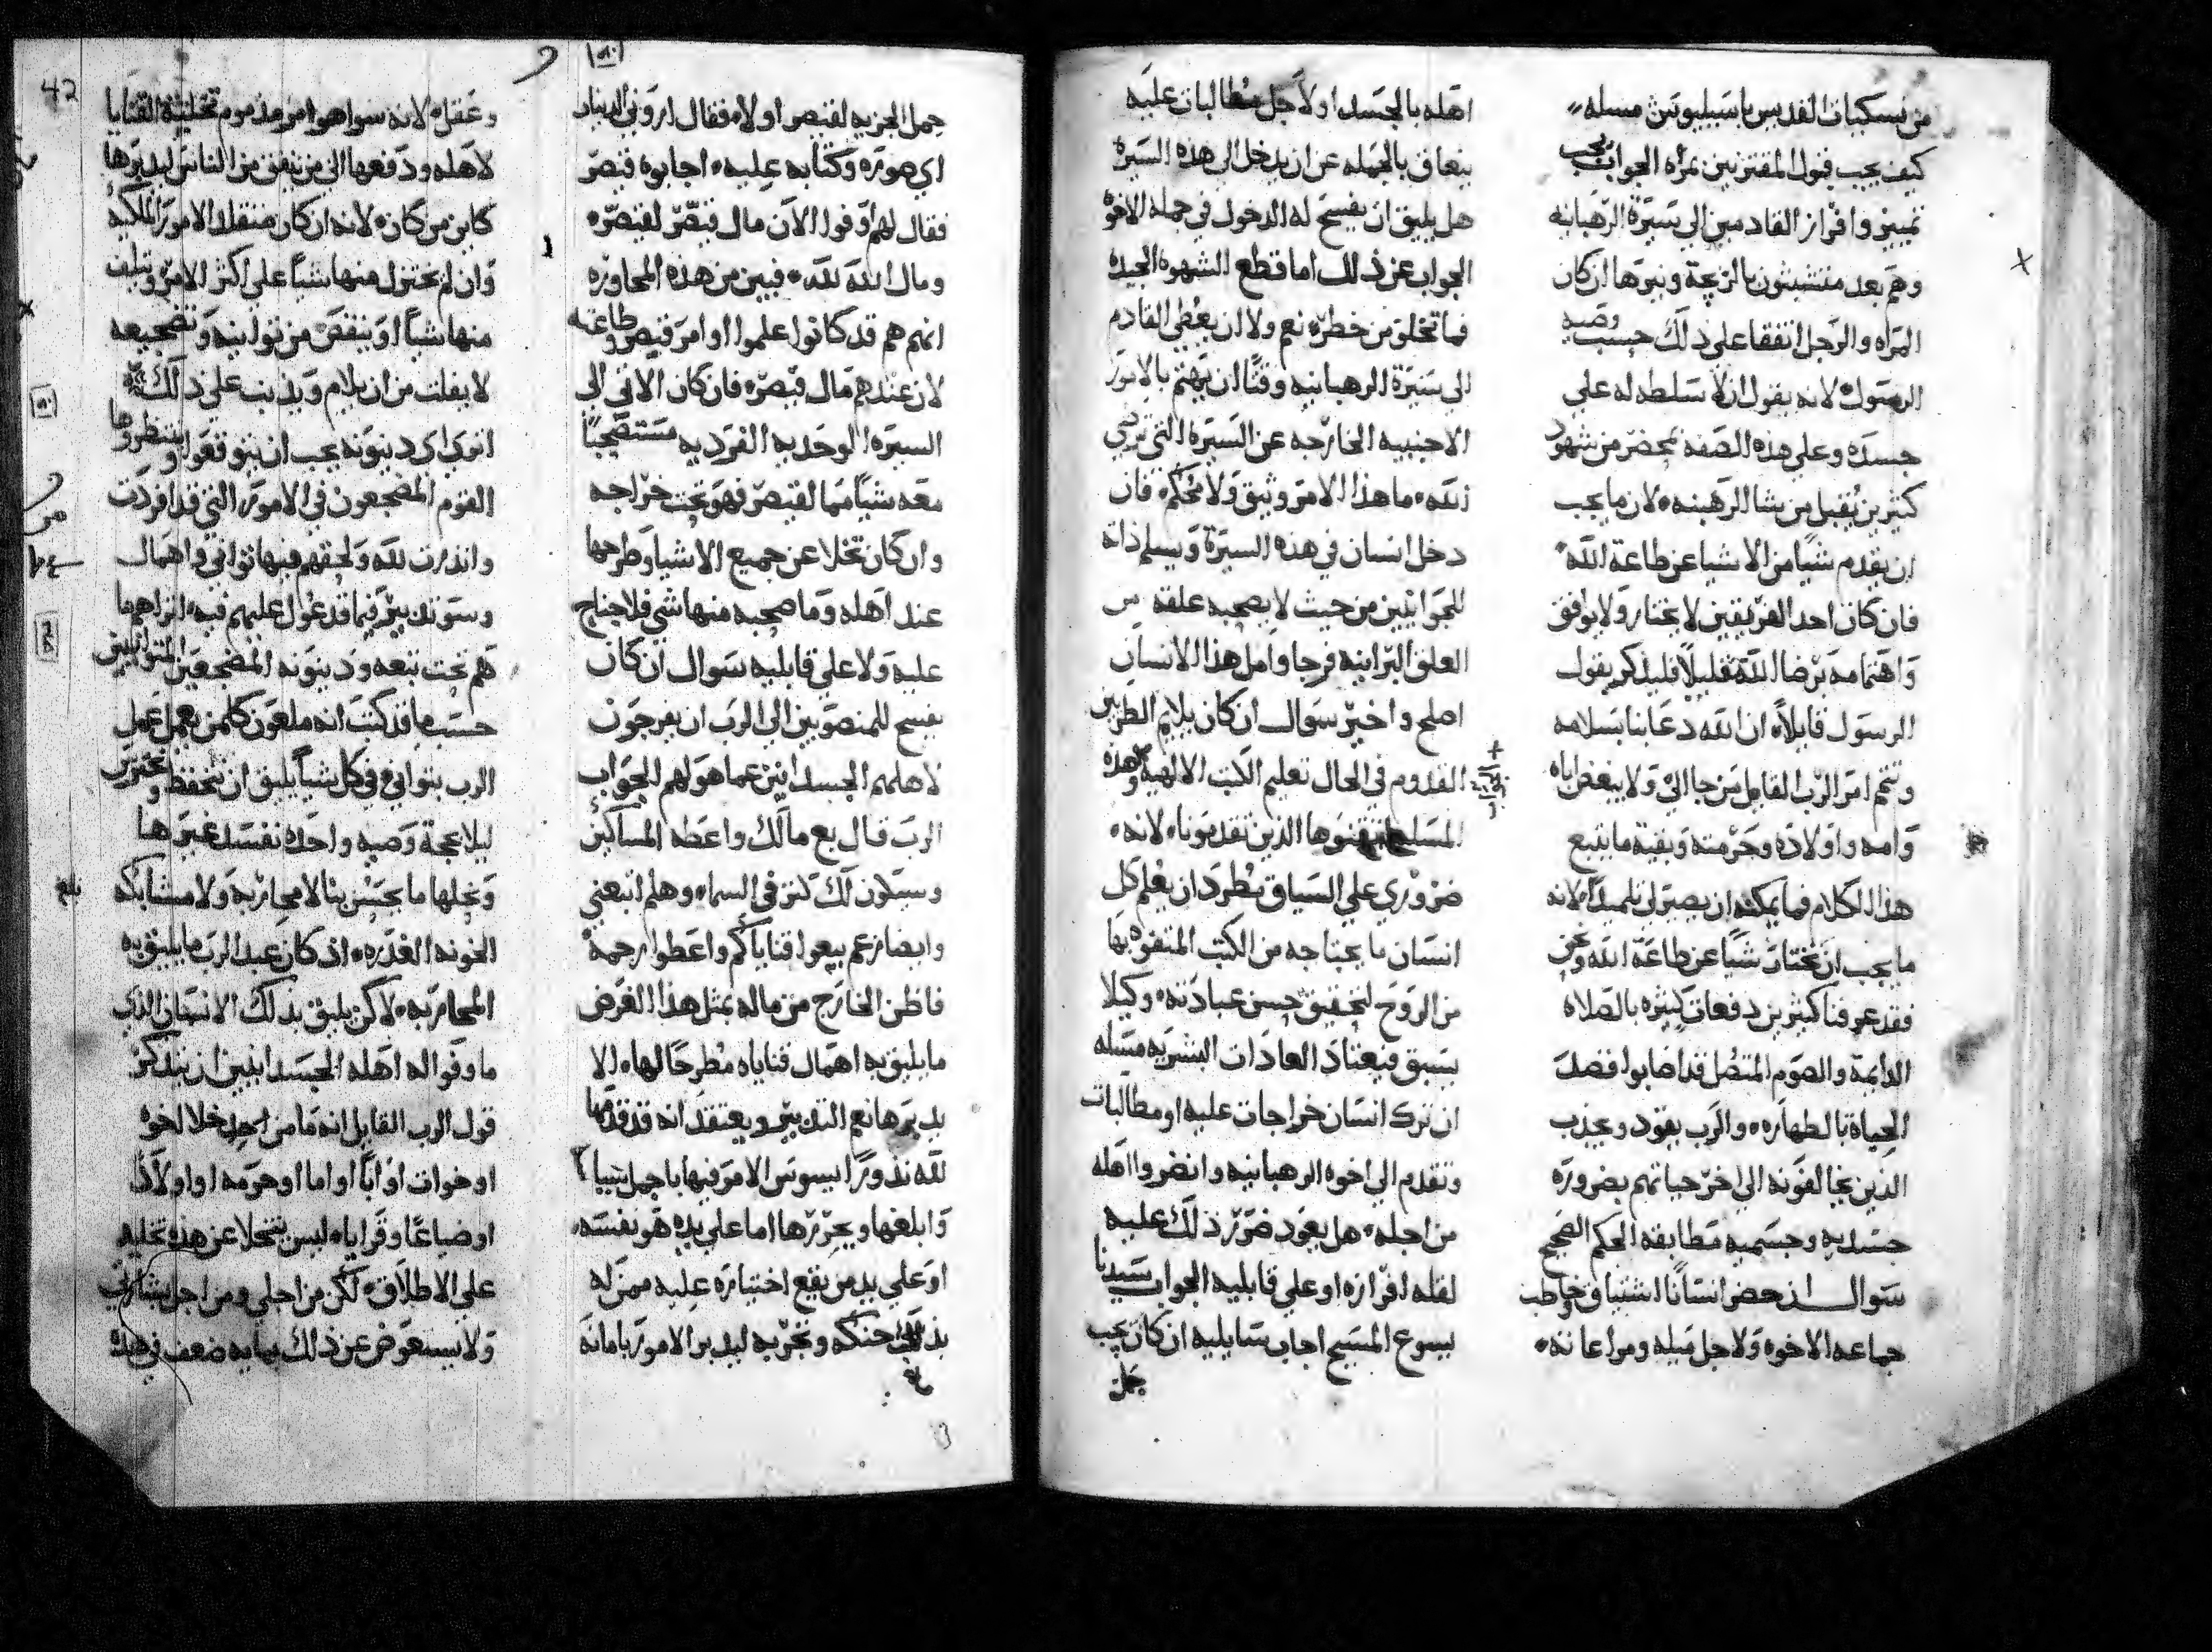 من نسكيات القديس باسيليوس مسله
كيف يجب قبول المقترنين بمراه الجواب يجب
تمييز وافراز القادمين الي سيرة الرهبانيه
وهم بعد متشبثون بالزيجة ونيرها ان كان
المراه والرجل اتفقا علي ذلك حسب وصيه
الرسول لانه يقول ان لا سلطه له علي
جسده وعلي هذه الصفه بمحضر من شهود
كثيرين يقبل من يشا الرهبنه لان ما يجب
ان يقدم شيا من الاشيا عن طاعة الله
فان كان احد الفريقين لا يختار ولا يوافق
واهتمامه برضا الله قليلا فليذكر بقول
الرسول قايلا ان الله دعانا بسلامه
وتتم امر الرب القايل من جا الي ولا يبغض اباه
وامه واولاده وحرمته وبقية ما يتبع
هذا الكلام فما يمكنه ان يصير لي تلميذا لانه
ما يجب ان يختار شيا عن طاعة الله ونحن
فقد عرفنا كثيرين دفعات كثيره بالصلاه
الدايمة والصوم المتصل قد اصابوا فضل
الحياة بالطهاره والرب يقود ويجذب
الذين يخالفونه الي اخر حياتهم بضرورة
جسديه وجسميه مطابقه الحكم الصحيح
سوال ان حضر انسانا اشتياق وخاطب
جماعه الاخوه ولاجل ميله ومراعاته
اهله بالجسد او لاجل مطالبات عليه
يتعاق بالجمله عن ان يدخل الي هذه السيرة
هل يليق ان يفسح له الدخول في جمله الاخوه
الجواب عن ذلك اما قطع الشهوه الجيده
فما تخلو من خطره نعم ولا ان يعطي القادم
الي سيرة الرهبانيه وقتا ان يهتم بالامور
الاجنبيه الخارجه عن السيره التي ترضي
لله ما هذا الامر وثيق ولا محكم فان
دخل انسان في هذه السيرة ويسلم ذاته
للجوانيين من حيث لا يصحبه علقه من
العلق البرانيه فرجا وامل هذا الانسان
اصلح واخير سوال ان كان يلايم الطريين
القدوم في الحال تعليم الكتب الالهيه وهذه
المسله الذين تقدمونا لانه
ضروري علي السياق يطرد ان يعلم كل
انسان ما يحتاجه من الكتب المتفوه بها
من الروح لتحقيق حسن عبادته وكيلا
يسبق فيعتاد العادات البشريه مسله
ان ترك انسان خراجات عليه او مطالبات
وتقدم الي اخوه الرهبانيه وانضروا اهله
من اجله هل يعود ضرر ذلك عليه
لقله افرازه او علي قابليه الجواب سيدنا
يسوع المسيح اجاب سايليه ان كان يجب
حمل
حمل الجزيه لقيصر او لا فقال اروني الدينار
اي صوره وكتابه عليه اجابوه قيصر
فقال لهم اوفوا الان مال قيصر لقيصر
ومال الله لله فبين من هذه المحاوره
انهم هم قد كانوا علموا اوامر قيصر وطاعته
لان عندهم مال قيصر فان كان الاتي الي
السيره الوحديه الفرديه مستصحبا
معه شيا مما لقيصر فهو تحت خراجه
وان كان تخلا عن جميع الاشيا وطرحها
عند اهله وما صحبه منها شي فلا جناح
عليه ولا علي قابليه سوال ان كان
يفسح للمنضويين الي الرب ان يفرجون
لاهلهم الجسدانيين عما هو لهم الجواب
الرب قال بع مالك واعطه المساكين
وسيكون لك كنز في السماء وهلم اتبعني
وايضا زعم بيعوا قناياكم واعطوا رحمة
فاظن الخارج من ماله بمثل هذا الغرض
ما يليق به اهمال قناياه مطرحا لها الا
يدبرها نعم التدبير ويعتقد انه قد قدمها
لله نذورا يسوس الامر فيها باجمل شيا
وابلغها ويحررها اما علي يده هو نفسه
او علي يد من يقع اختياره عليه ممن له
بذلك حنكه وتجربه ليدبر الامور بامانه
وعقل
42
وعقل لانه سوا هو امر مذموم تخليه القنايا
لاهله ودفعها الي من يتفق من الناس ليدبرها
كاين من كان لانه ان كان متقلد الامور الملكيه
وان لم يختزل منها شيا علي اكثر الامر ويتلف
منها شيا او ينقص من توانيه وتضجيعه
لا يفلت من ان يلام ويذنب علي ذلك
اتوي اي دينونه يجب ان يتوقعوا وينتظروها
القوم المضجعون في الامور التي قد افردت
وانذرت لله ولحقهم فيها تواني واهمال
وسو تدبير فيما قد عول عليهم فيه اتراهم ما
هم تحت تبعه ودينونه المضجعين المتوانيين
حسب ما قد كتب انه ملعون كلمن يعمل عمل
الرب بتواني في كل شيا يليق ان نتحفظ ونحترس
ليلا بحجة وصيه واحده نفسد غيرها
ونحلها ما يحسن بنا لا محاربه ولا مشابكه
الخونه الغدره اذ كان عبد الرب ما يليق به
المحاربه لاكن يليق بذلك الانسان الذي
ما وفوا له اهله الجسدانيين ان يتذكر
قول الرب القايل انه ما من احد خلا اخوه
او خوات او ابا او اما او حرمه او اولاد
او ضياعا وقراياه ليس يتخلا عن هذه تخليه
علي الاطلاق لكن من اجلي ومن اجل بشارتي
ولا يستعوض عن ذلك بمايه ضعف في هذه